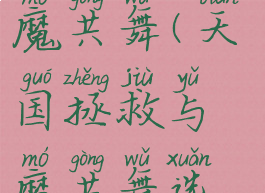 mó gòng wǔ tiān
魔共舞(天
guó zhěng jiù yǔ
国拯救与
mó gòng wǔ xuǎn
魔共舞选